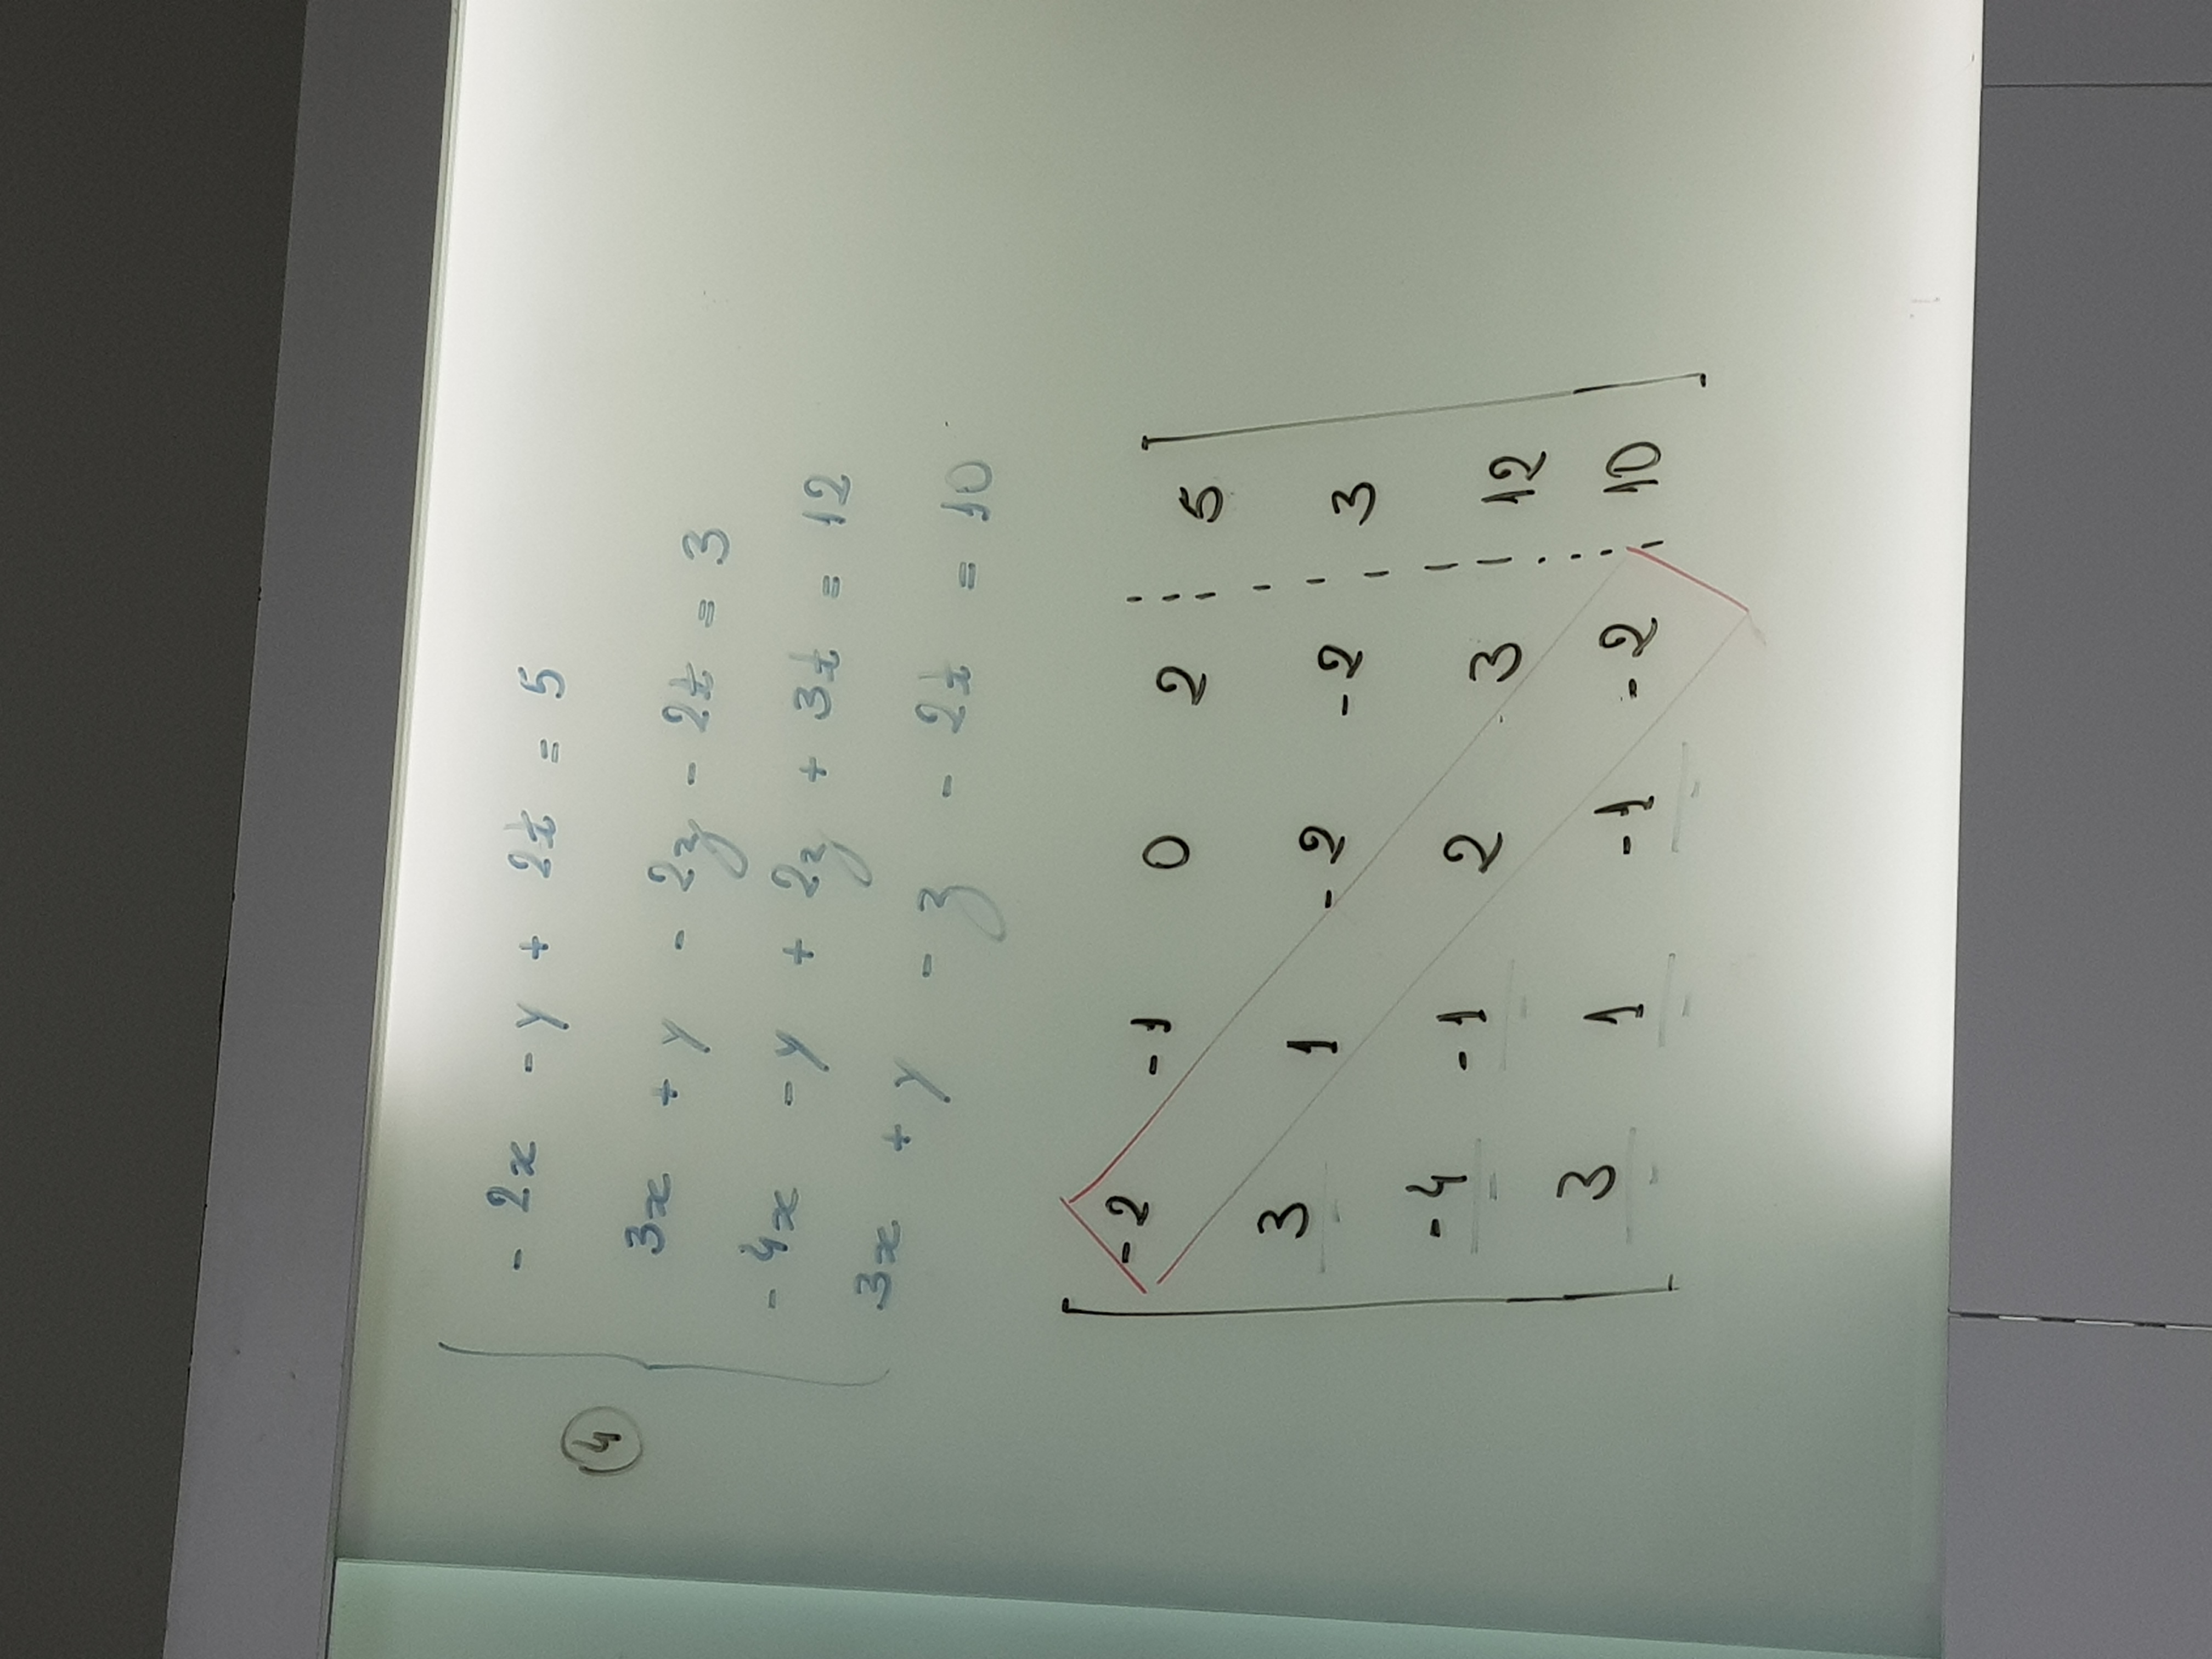 ④
- 2x - y + 2t = 5
3x + y - 2z - 2t = 3
- 4x - y + 2z + 3t = 12
3x + y - z - 2t = 10
-2 -1 0 2 5
3 1 -2 -2 3
-4 -1 2 3 12
3 1 -1 -2 10